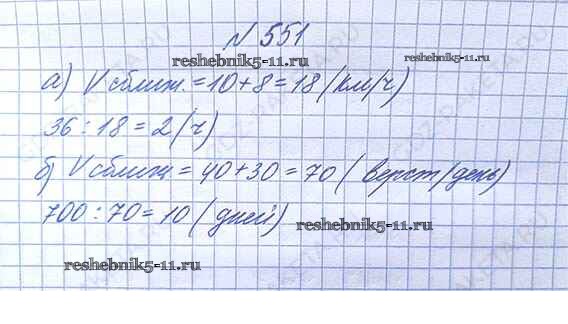 № 551
reshebnik5-11.ru reshebnik5-11.ru
а) V сближ. = 10 + 8 = 18 (км/ч)
36 : 18 = 2 (ч)
б) V сближ = 40 + 30 = 70 (верст/день)
700 : 70 = 10 (дней)
reshebnik5-11.ru
reshebnik5-11.ru